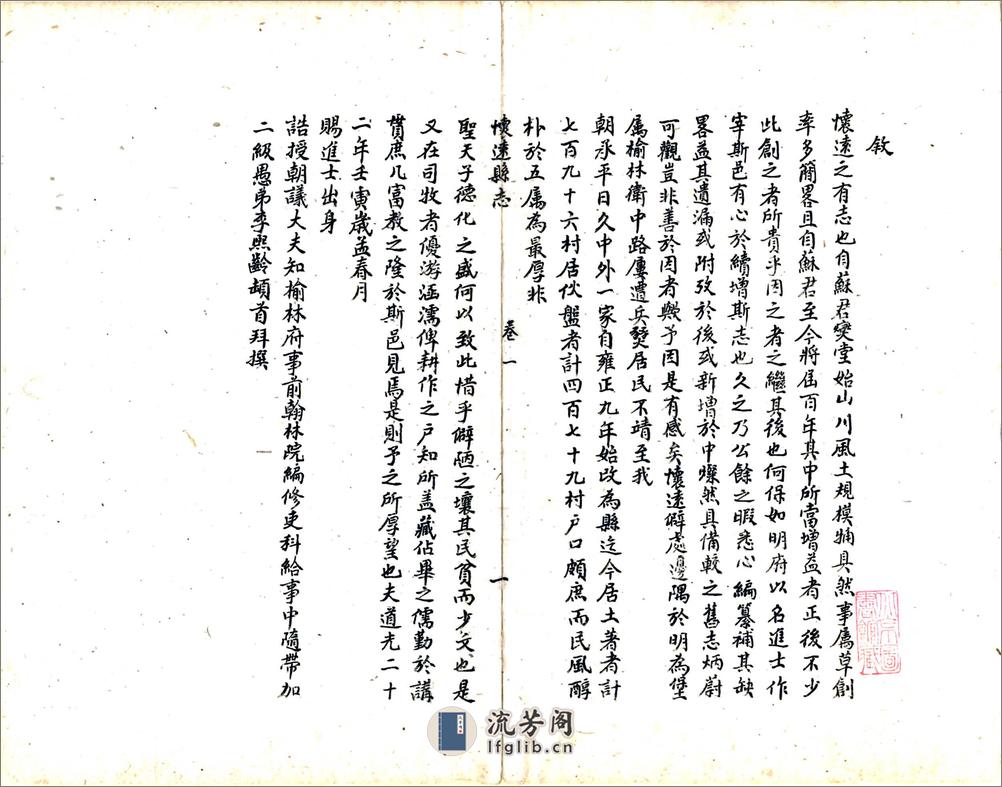 敘
懷遠之有志也自蘇君奕堂始山川風土規模犕具然事屬草創
率多簡畧且自蘇君至今將屆百年其中所當增益者正後不少
此創之者所貴乎因之者之繼其後也何保如明府以名進士作
宰斯邑有心於續增斯志也久之乃公餘之暇悉心編纂補其缺
畧益其遺漏或附攷於後或新增於中燦然具備較之舊志炳蔚
可觀豈非善於因者歟予因是有感矣懷遠僻處邊隅於明為堡
属榆林衛中路屢遭兵燹居民不靖至我
朝承平日久中外一家自雍正九年始改為縣迄今居土著者計
七百九十六村居伙盤者計四百七十九村户口頗庶而民風醇
朴於五属為最厚非
懷遠縣志
卷一
一
聖天子德化之盛何以致此惜乎僻陋之壤其民貧而少文也是
又在司牧者優游涵濡俾耕作之户知所盖藏佔畢之儒勤於講
貫庶几富教之隆於斯邑見焉是則予之所厚望也夫道光二十
二年壬寅歲孟春月
賜進士出身
誥授朝議大夫知榆林府事前翰林院編修吏科給事中隨帶加
二級愚弟李熙齡頓首拜撰
流芳阁
lfglib.cn